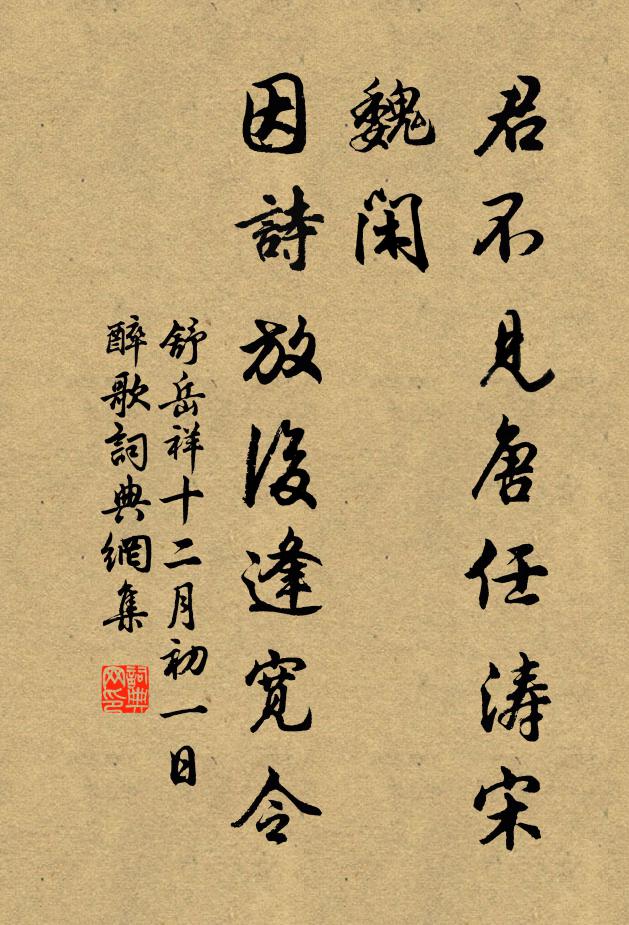 君不見唐任涛宋
魏閑
因詩放後逢寬令
舒岳祥十二月初一日
醉歌詞典網集
詞典
网印